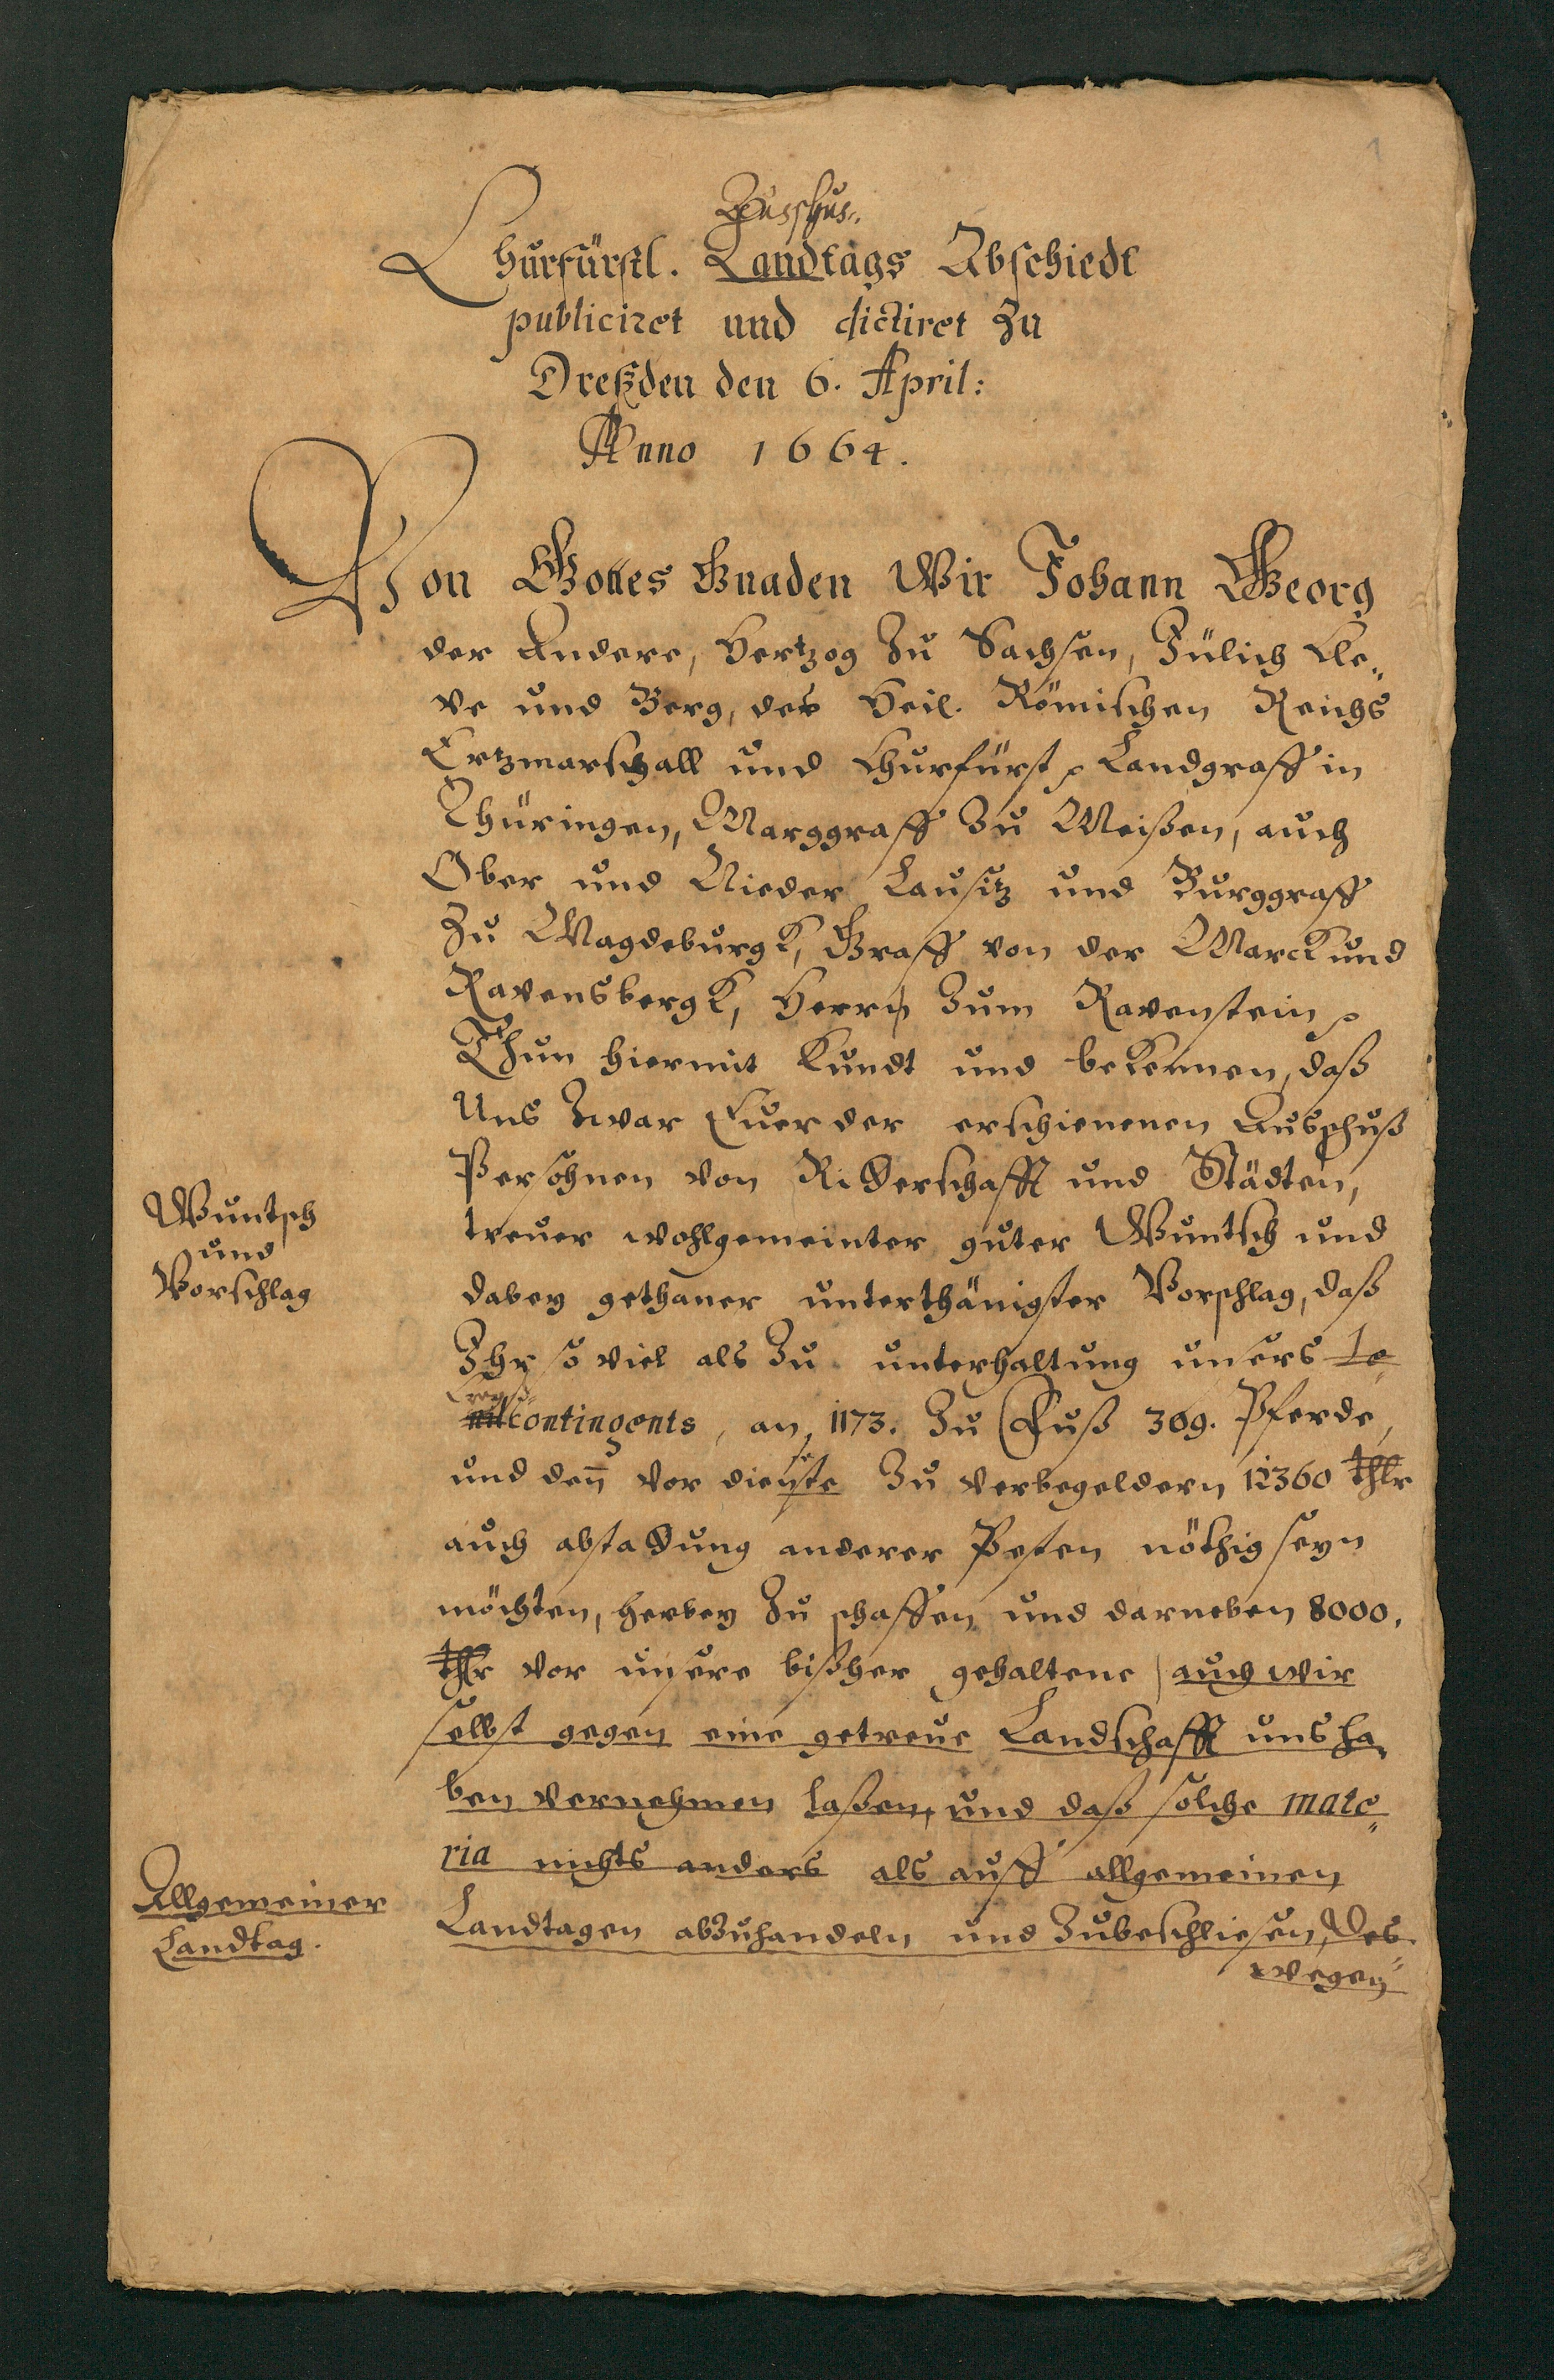 1
Ausschus-
Churfürstl. Landtags Abschiedt
publiciret und dictiret zu
Dreßden den 6. April:
Anno 1664.
Von Gottes Gnaden Wir Johann Georg
der Andere, Hertzog zu Sachsen, Jülich Cle-
ve und Berg, des Heil. Römischen Reichs
Ertzmarschall und Churfürst, Landgraff in
Thüringen, Marggraff zu Meißen, auch
Ober und Nieder Lausitz und Burggraff
zu Magdeburgk, Graff von der Marck und
Ravensbergk, Herrn zum Ravenstein,
Thun hiermit kundt und bekennen, daß
Uns zwar Euer der erschienenen Ausschuß
Persohnen von Ritterschafft und Städten,
Wuntsch
und
Vorschlag
treuer wohlgemeinter guter Wuntsch und
dabey gethaner unterthänigster Vorschlag, daß
Ihr so viel als zu unterhaltung unsers
Creyß-
contingents, an 1173. zu Fuß 309. Pferde,
und den̄ vor dieste zu werbegeldern 12360 thlr
auch abstattung anderer Posten nöthig seyn
möchten, herbey zu schaffen und darneben 8000.
thlr vor unsere bißher gehaltene auch wir
selbst gegen eine getreue Landschafft uns ha-
ben vernehmen laßen, und daß solche mate-
ria nichts anders als auff allgemeinen
Allgemeiner
Landtag.
Landtagen abzuhandeln und zubeschliesen, Des-
wegen